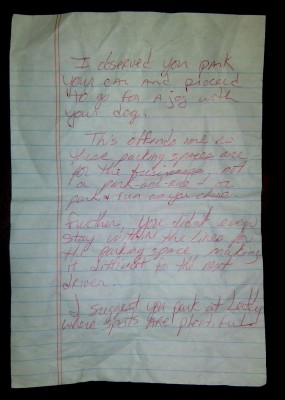 I observed you park
your car and proceed
to go for a jog with
your dog.
This offends me
these parking spaces are
for the not
a park-and-ride
park & run
Further, you didn't even
stay within the lines for
the parking space, making
it difficult to the next
driver.
I suggest you park at
where spots are plentiful.